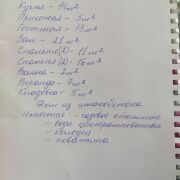 Кухня - 14м²
Прихожая - 5м²
Гостиная - 13м²
Зал - 27м²
Спальня(1) - 11м²
Спальня(2) - 16м²
Ванна - 7м²
Веранда - 7м²
Кладовка - 5м²
Дом из шлакобетона.
Имеется: - газовое отопление
- вода централизованная
- колодец
- скважина